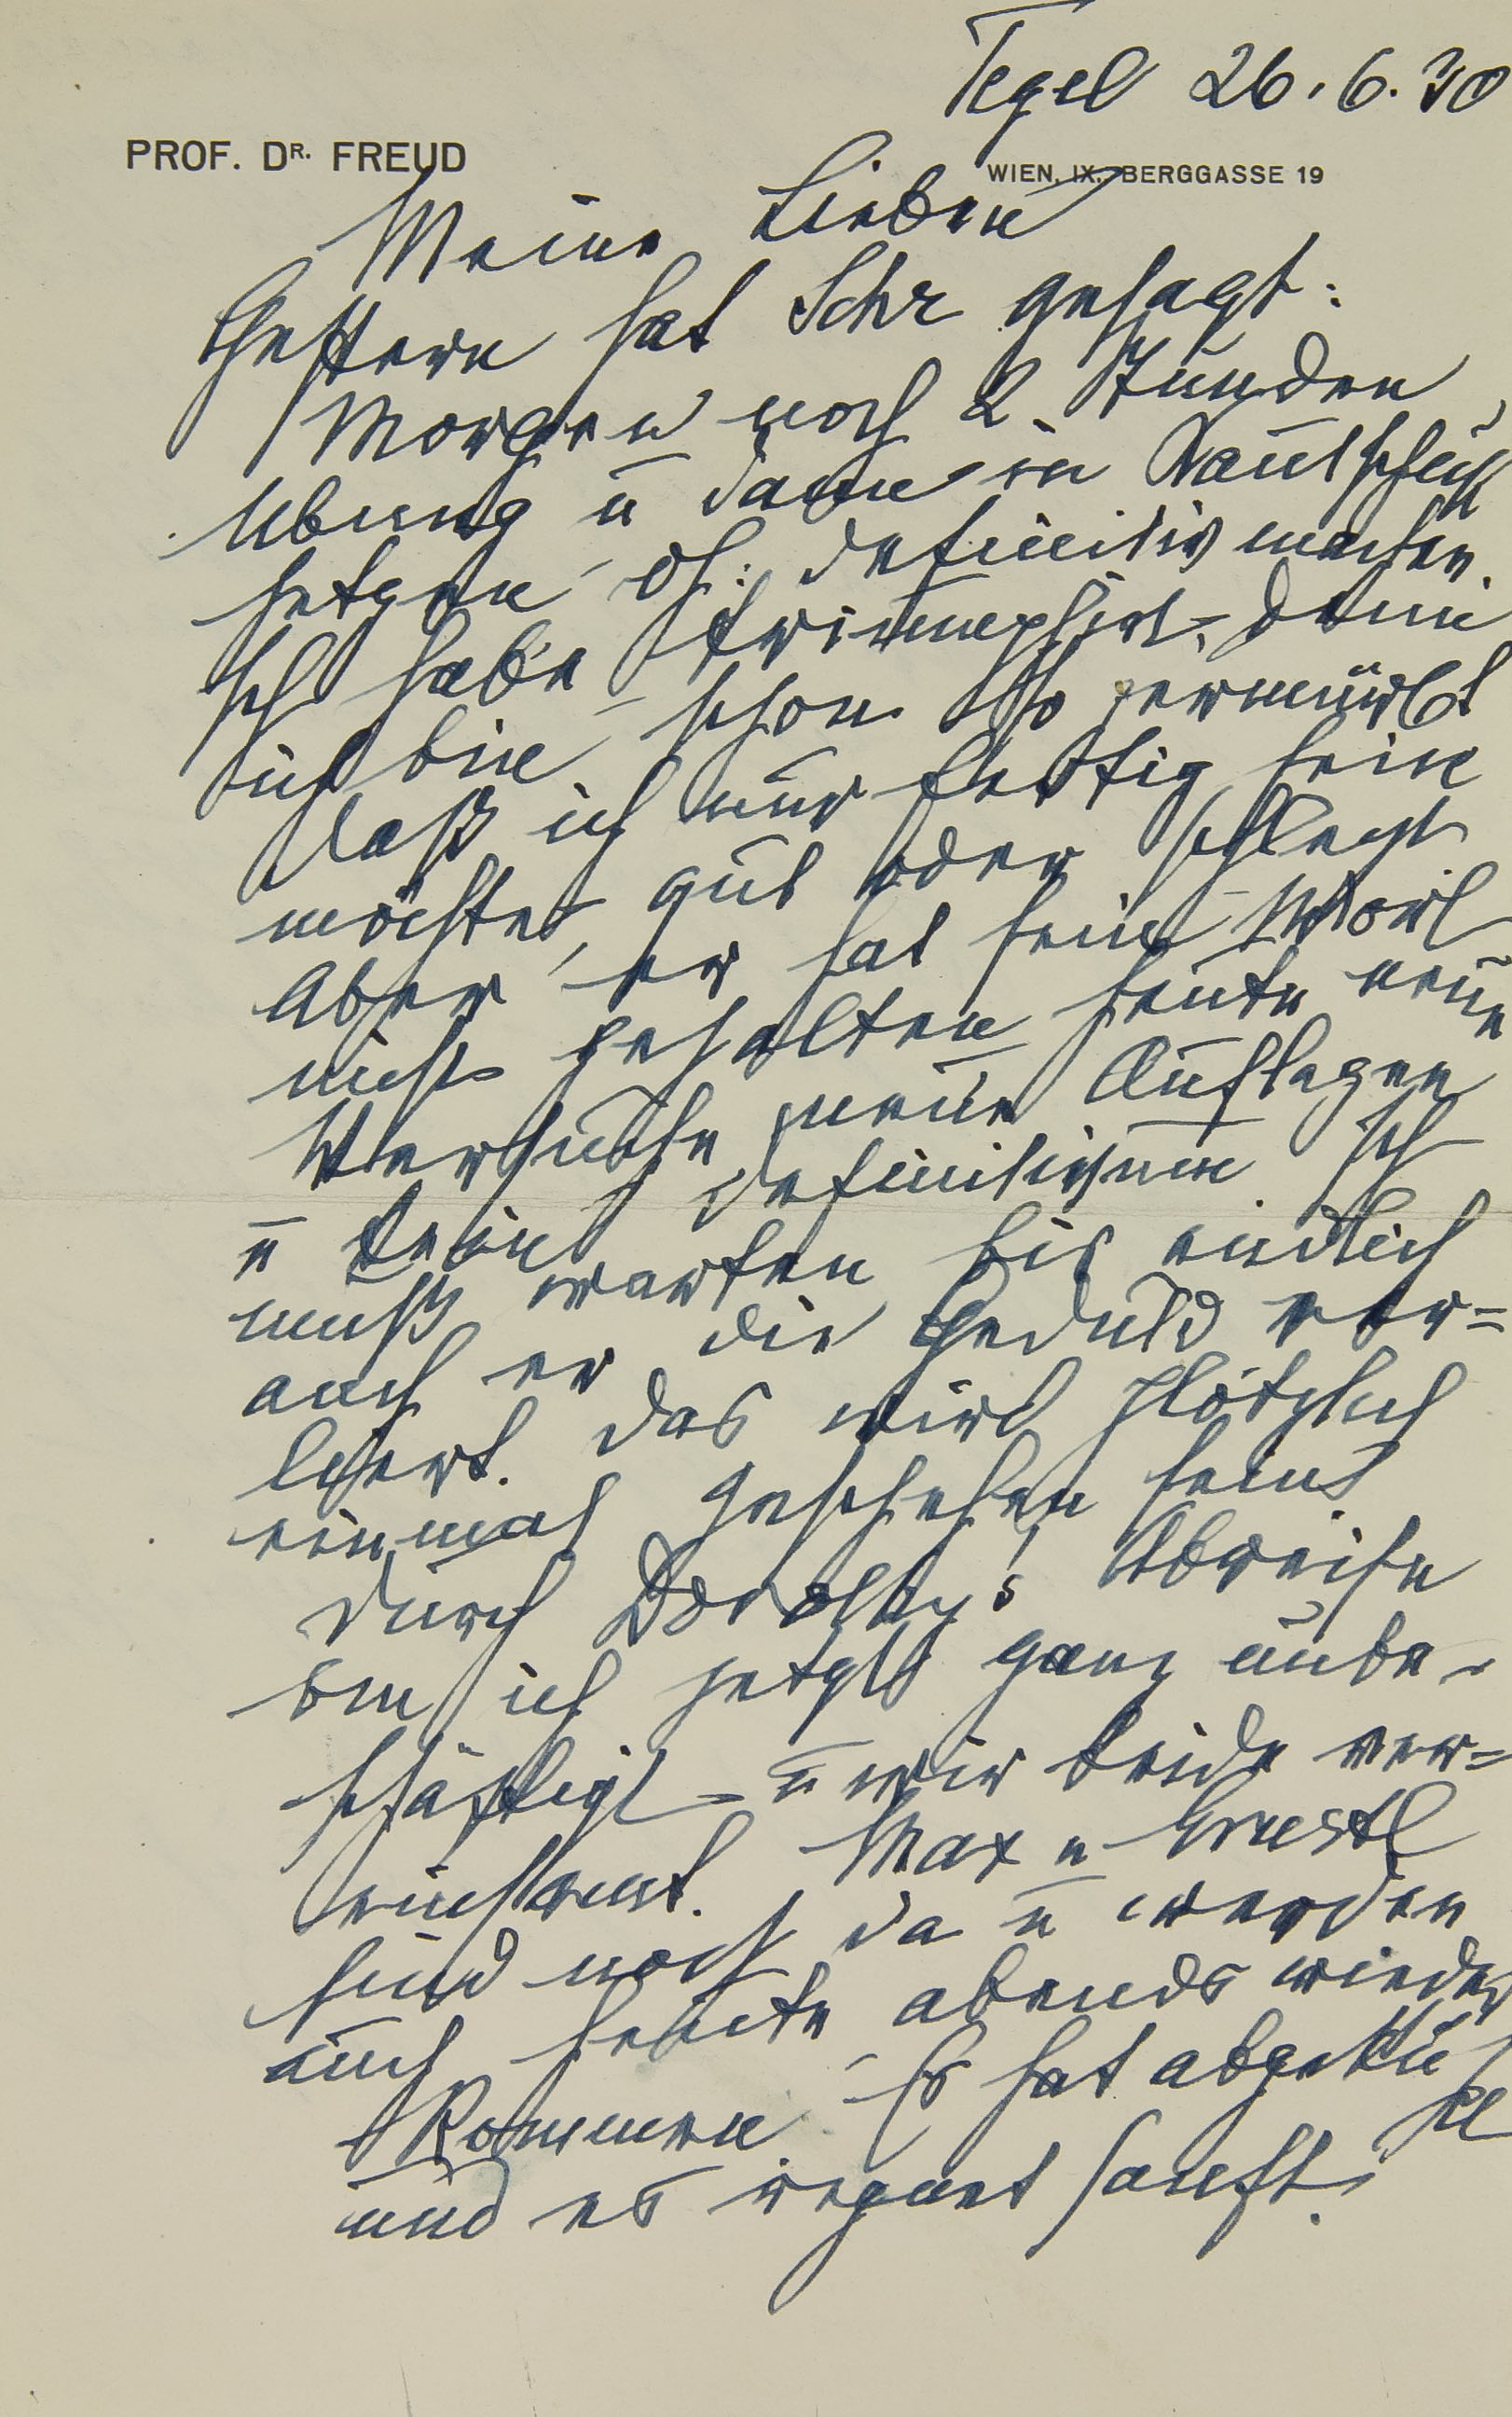 Tegel 26.6.30
PROF. DR. FREUD
WIEN, IX., BERGGASSE 19
Meine Lieben
Gestern hat Schr gesagt:
Morgen noch 2 Stunden
Übung u dann in Kautschuk
setzen dh: definitiv machen.
Ich habe triumphirt, denn
ich bin schon so zermürbt
daß ich nur fertig sein
möchte, gut oder schlecht
Aber er hat sein Wort
nicht gehalten heute neue
Versuche neue Auflagen
u kein Definitivum. Ich
muß warten bis endlich
auch er die Geduld ver=
liert. Das wird plötzlich
einmal geschehen sein
Durch Dorothy's Abreise
bin ich jetzt ganz unbe-
schäftigt u wir beide ver=
einsamt. Max u Ernstl
sind noch da u werden
auch heute abends wieder
kommen. Es hat abgekü
hl
und es regnet sanft.